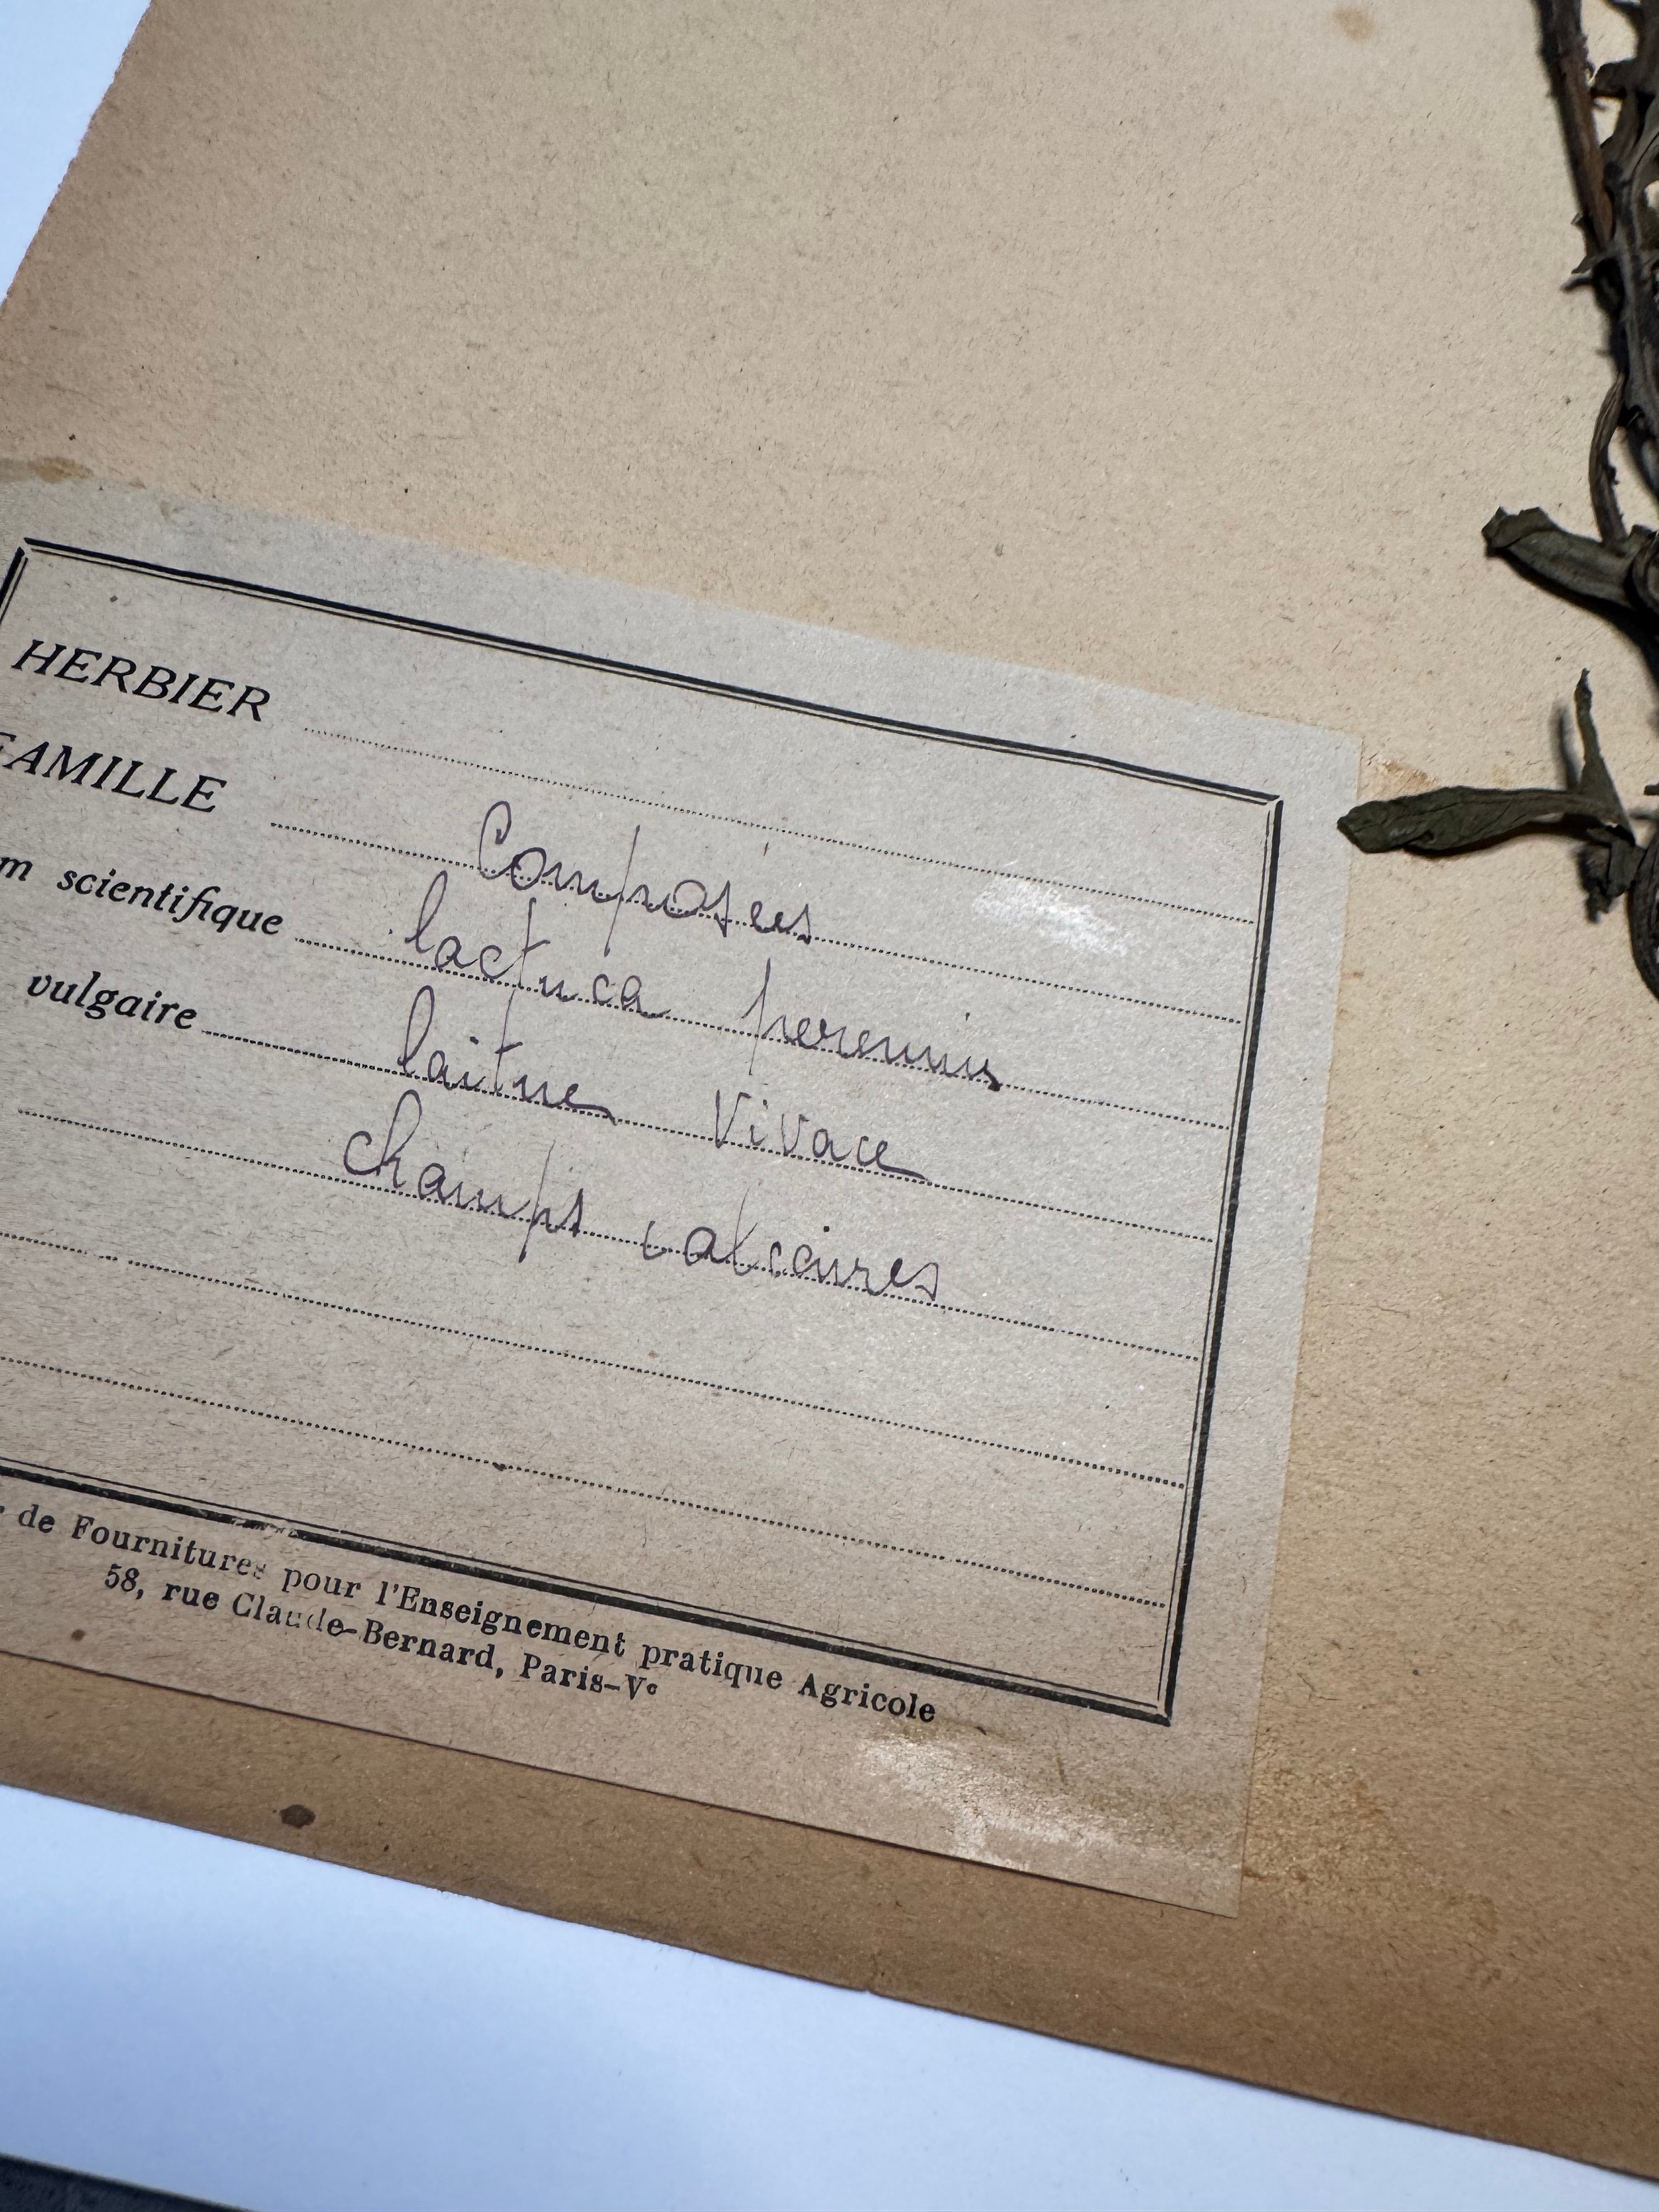 HERBIER
FAMILLE Composees
m scientifique lactuca perennis
vulgaire laitue vivace
champs calcaires
de Fournitures pour l'Enseignement pratique Agricole
58, rue Claude-Bernard, Paris-Vᵉ